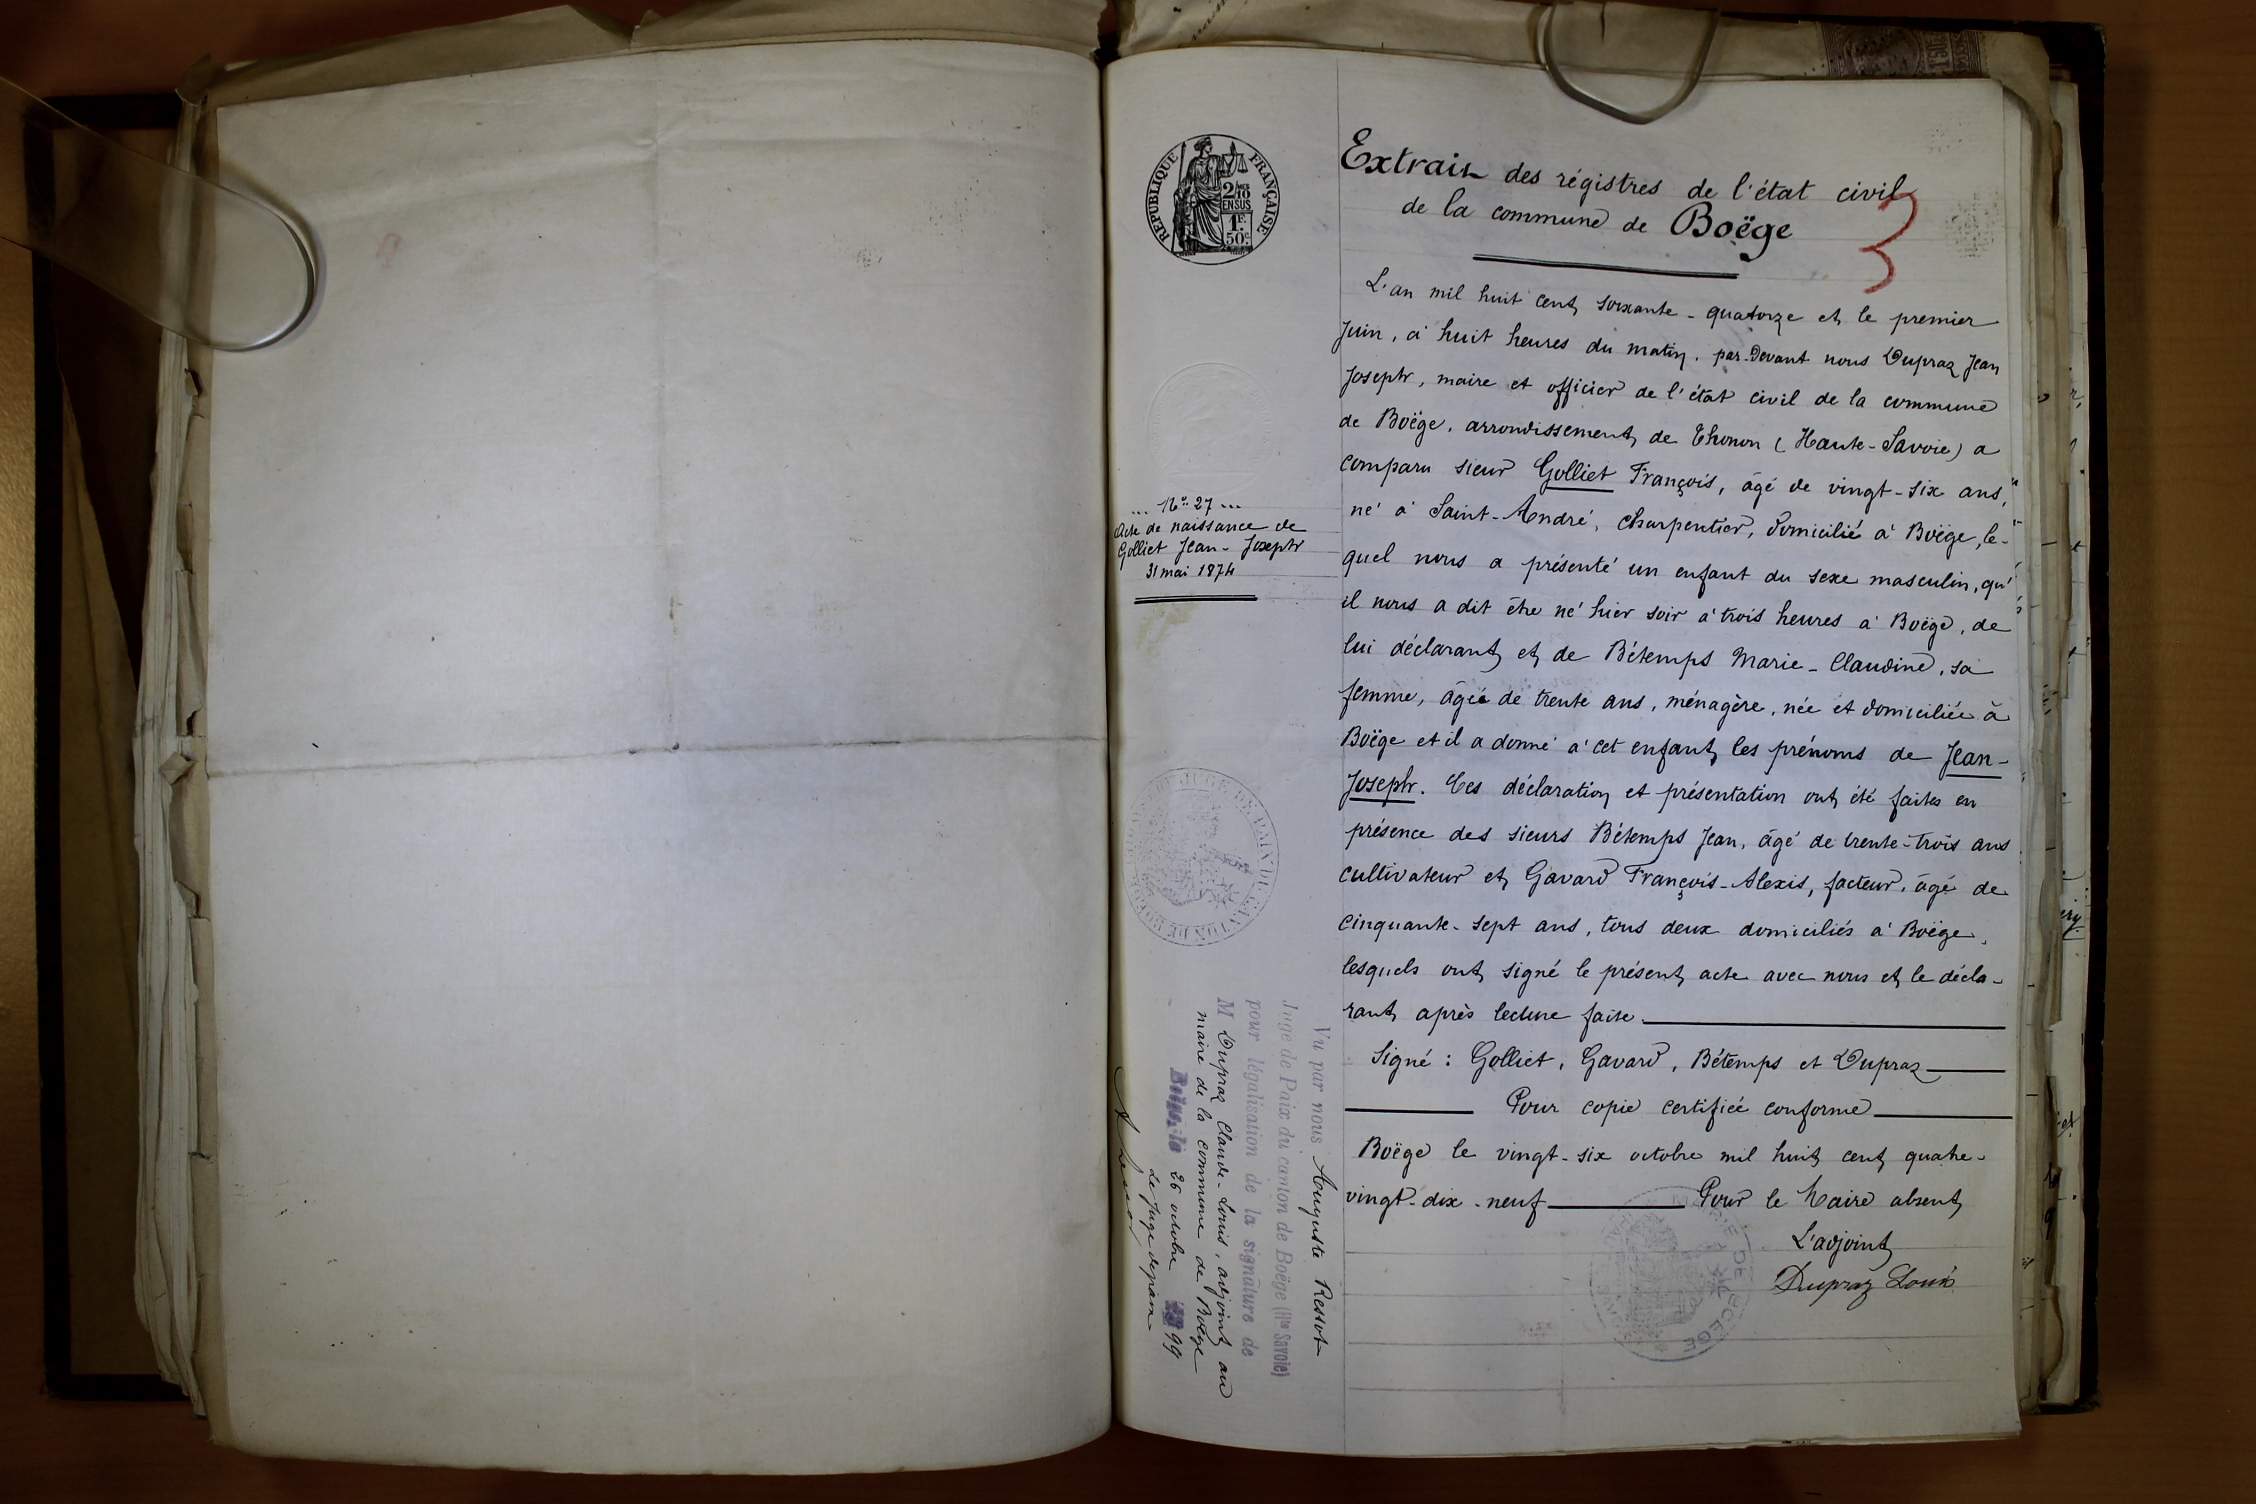 RÉPUBLIQUE FRANÇAISE
2/10
EN SUS
1F.
50c.
Extrait des régistres de l'état civil
de la commune de Boëge
3
L'an mil huit cent soixante-quatorze et le premier
Juin, à huit heures du matin, par-devant nous Dupraz Jean
Joseph, maire et officier de l'état civil de la commune
de Boëge, arrondissement de Thonon (Haute-Savoie) a
comparu sieur Golliet François, âgé de vingt-six ans,
né à Saint-André, charpentier, domicilié à Boëge, le-
quel nous a présenté un enfant du sexe masculin, qu'
il nous a dit être né hier soir à trois heures à Boëge, de
lui déclarant et de Bétemps Marie-Claudine, sa
femme, âgée de trente ans, ménagère, née et domiciliée à
Boëge et il a donné à cet enfant les prénoms de Jean-
Joseph. Ces déclaration et présentation ont été faites en
présence des sieurs Bétemps Jean, âgé de trente-trois ans
cultivateur et Gavard François-Alexis, facteur, âgé de
cinquante-sept ans, tous deux domiciliés à Boëge,
lesquels ont signé le présent acte avec nous et le décla-
rant après lecture faite.
Signé : Golliet, Gavard, Bétemps et Dupraz
Pour copie certifiée conforme
Boëge le vingt-six octobre mil huit cent quatre-
vingt-dix-neuf Pour le Maire absent
L'adjoint
Dupraz Louis
MAIRIE DE BOEGE
... No 27 ...
Acte de naissance de
Golliet Jean-Joseph
31 mai 1874
JUGE DE PAIX DU CANTON DE BOËGE
Vu par nous, Auguste Ressot
Juge de Paix du canton de Boëge (Hte Savoie)
pour légalisation de la signature de
M Dupraz Claude-Louis, adjoint au
maire de la commune de Boëge
Boëge, le 26 octobre 1899
Le juge de paix